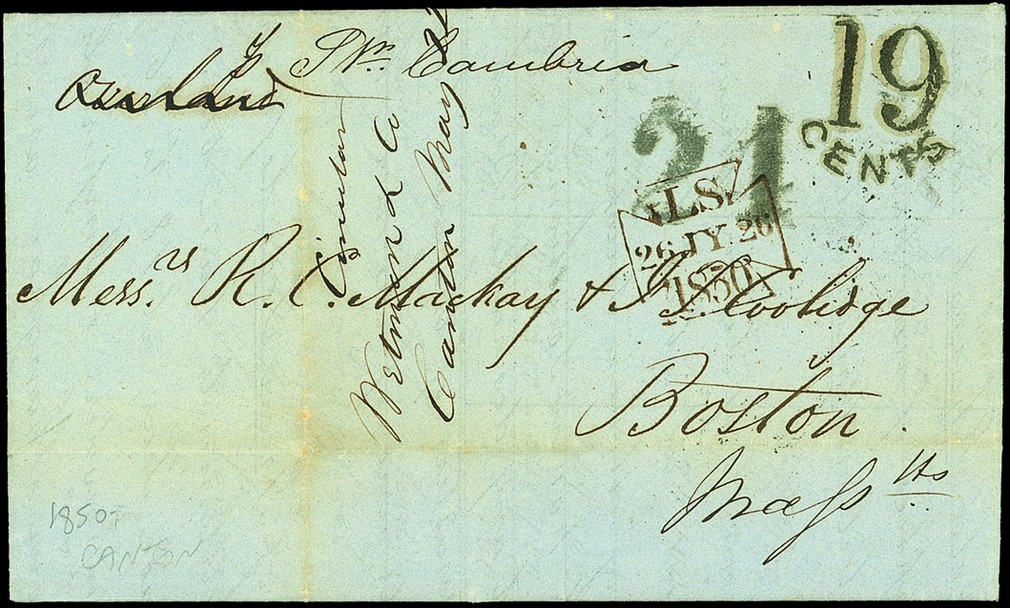 Overland
Pr. Cambria
19
CENTS
24
LS.
26 JY 26
1850
Circular
Wetmore & Co
Canton May
Mess.rs R. C. Mackay & J. S. Coolidge
Boston
Mass tts
1850-
CANTON